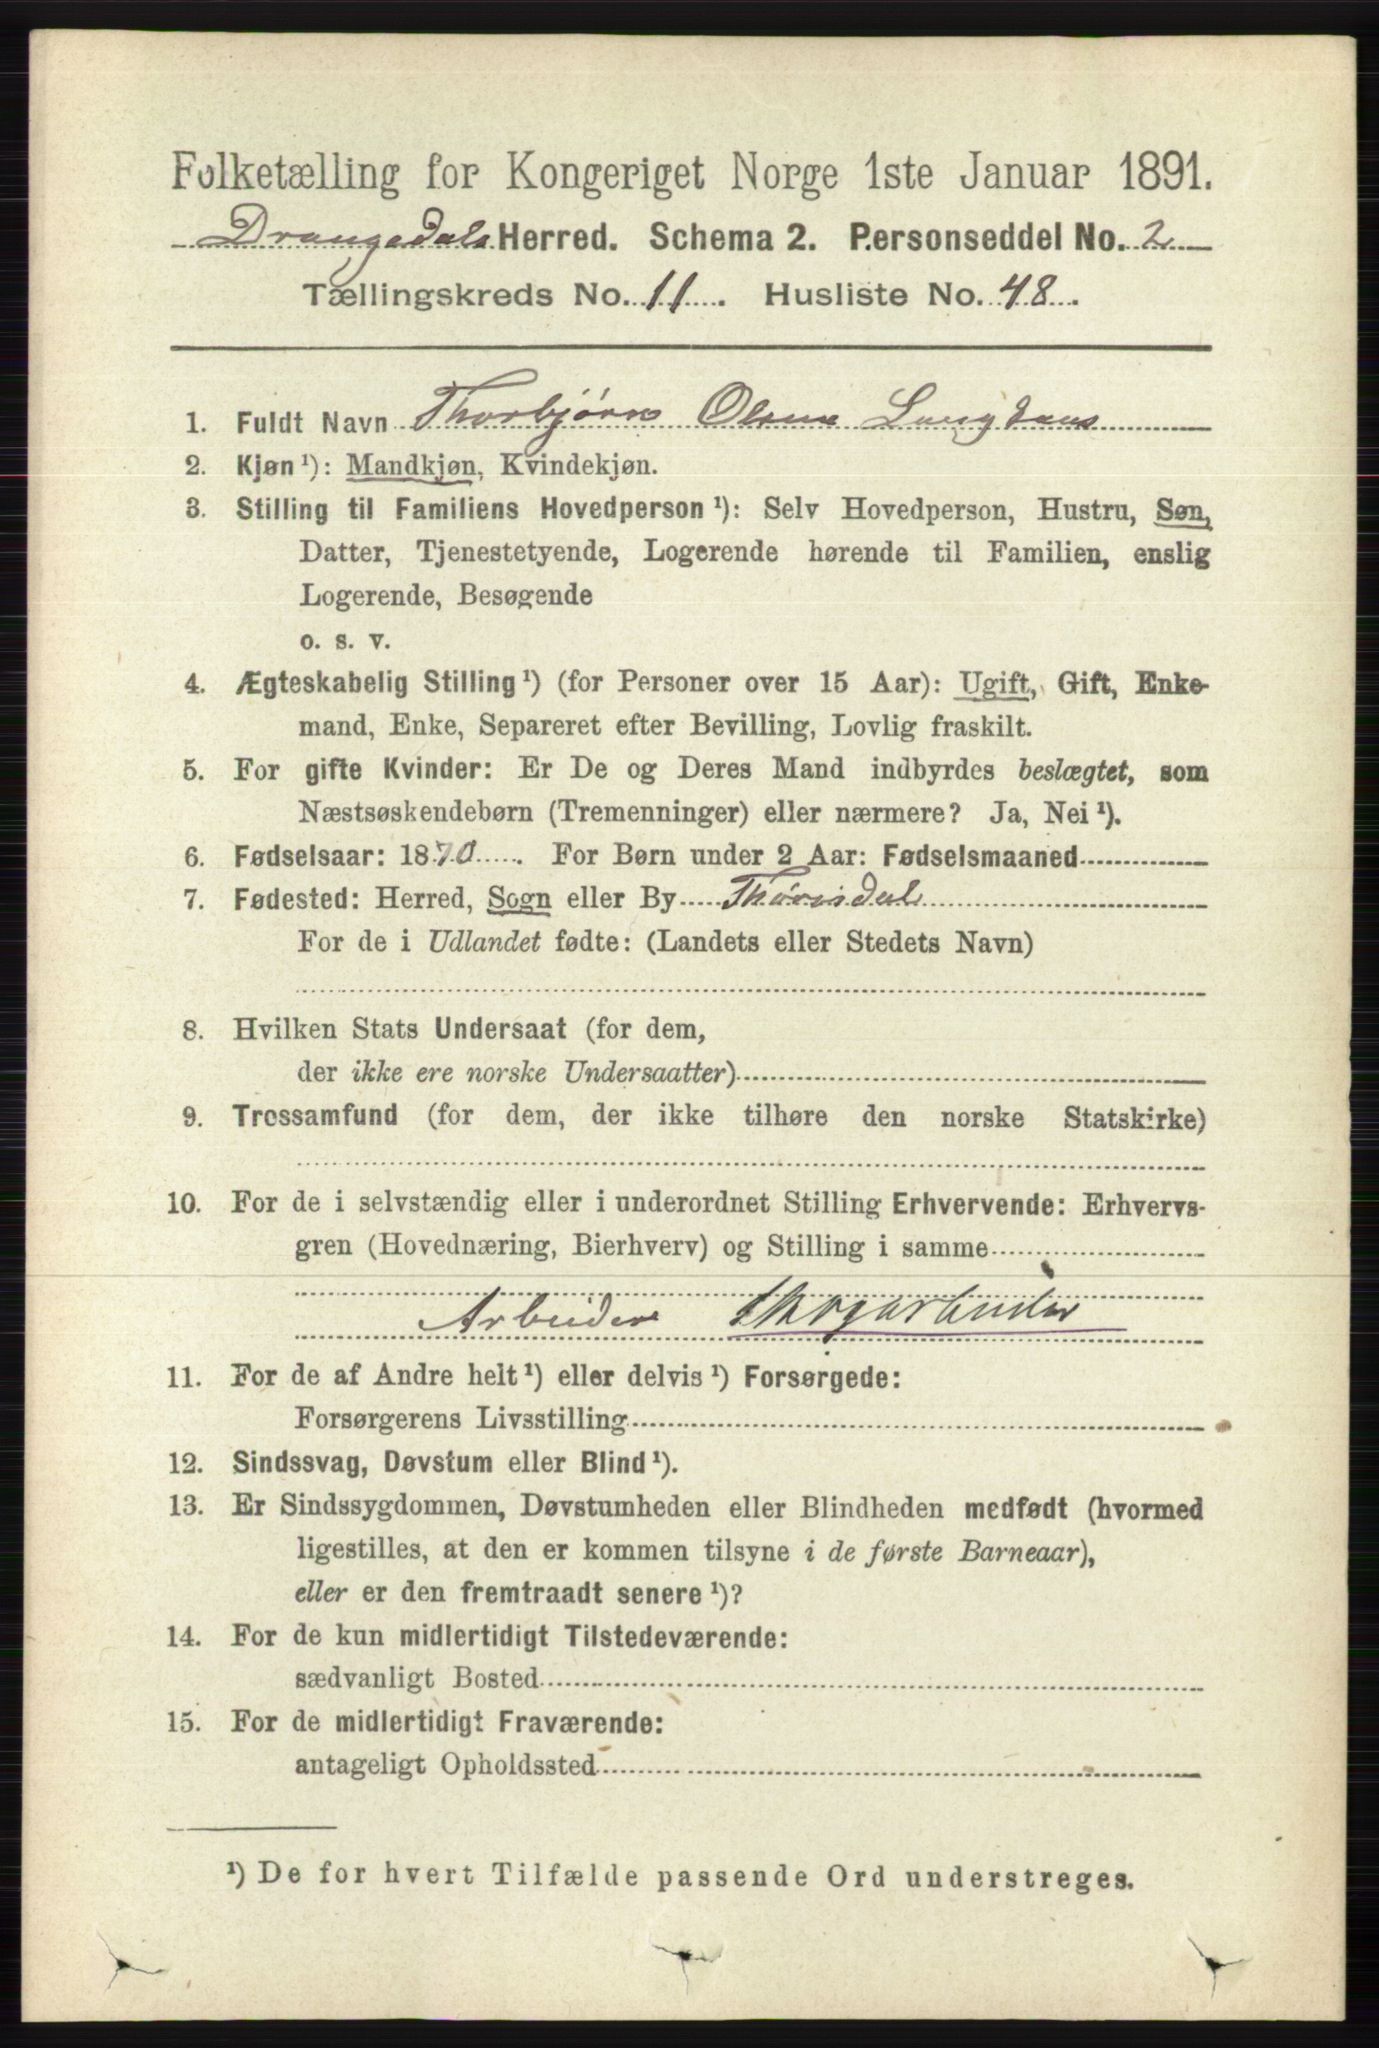 Folketælling for Kongeriget Norge 1ste Januar 1891.
Drangedals Herred. Schema 2. Personseddel No. 2
Tællingskreds No. 11. Husliste No. 48.
1. Fuldt Navn Thorbjørn Olsen
2. Kjøn ¹): Mandkjøn, Kvindekjøn.
3. Stilling til Familiens Hovedperson ¹): Selv Hovedperson, Hustru, Søn,
Datter, Tjenestetyende, Logerende hørende til Familien, enslig
Logerende, Besøgende
o. s. v.
4. Ægteskabelig Stilling ¹) (for Personer over 15 Aar): Ugift, Gift, Enke-
mand, Enke, Separeret efter Bevilling, Lovlig fraskilt.
5. For gifte Kvinder: Er De og Deres Mand indbyrdes beslægtet, som
Næstsøskendebørn (Tremenninger) eller nærmere? Ja, Nei ¹).
6. Fødselsaar: 1870. For Børn under 2 Aar: Fødselsmaaned
7. Fødested: Herred, Sogn eller By Thørisdal
For de i Udlandet fødte: (Landets eller Stedets Navn)
8. Hvilken Stats Undersaat (for dem,
der ikke ere norske Undersaatter)
9. Trossamfund (for dem, der ikke tilhøre den norske Statskirke)
10. For de i selvstændig eller i underordnet Stilling Erhvervende: Erhvervs-
gren (Hovednæring, Bierhverv) og Stilling i samme
Arbeider Skogarbeider
11. For de af Andre helt ¹) eller delvis ¹) Forsørgede:
Forsørgerens Livsstilling
12. Sindssvag, Døvstum eller Blind ¹).
13. Er Sindssygdommen, Døvstumheden eller Blindheden medfødt (hvormed
ligestilles, at den er kommen tilsyne i de første Barneaar),
eller er den fremtraadt senere ¹)?
14. For de kun midlertidigt Tilstedeværende:
sædvanligt Bosted
15. For de midlertidigt Fraværende:
antageligt Opholdssted
¹) De for hvert Tilfælde passende Ord understreges.